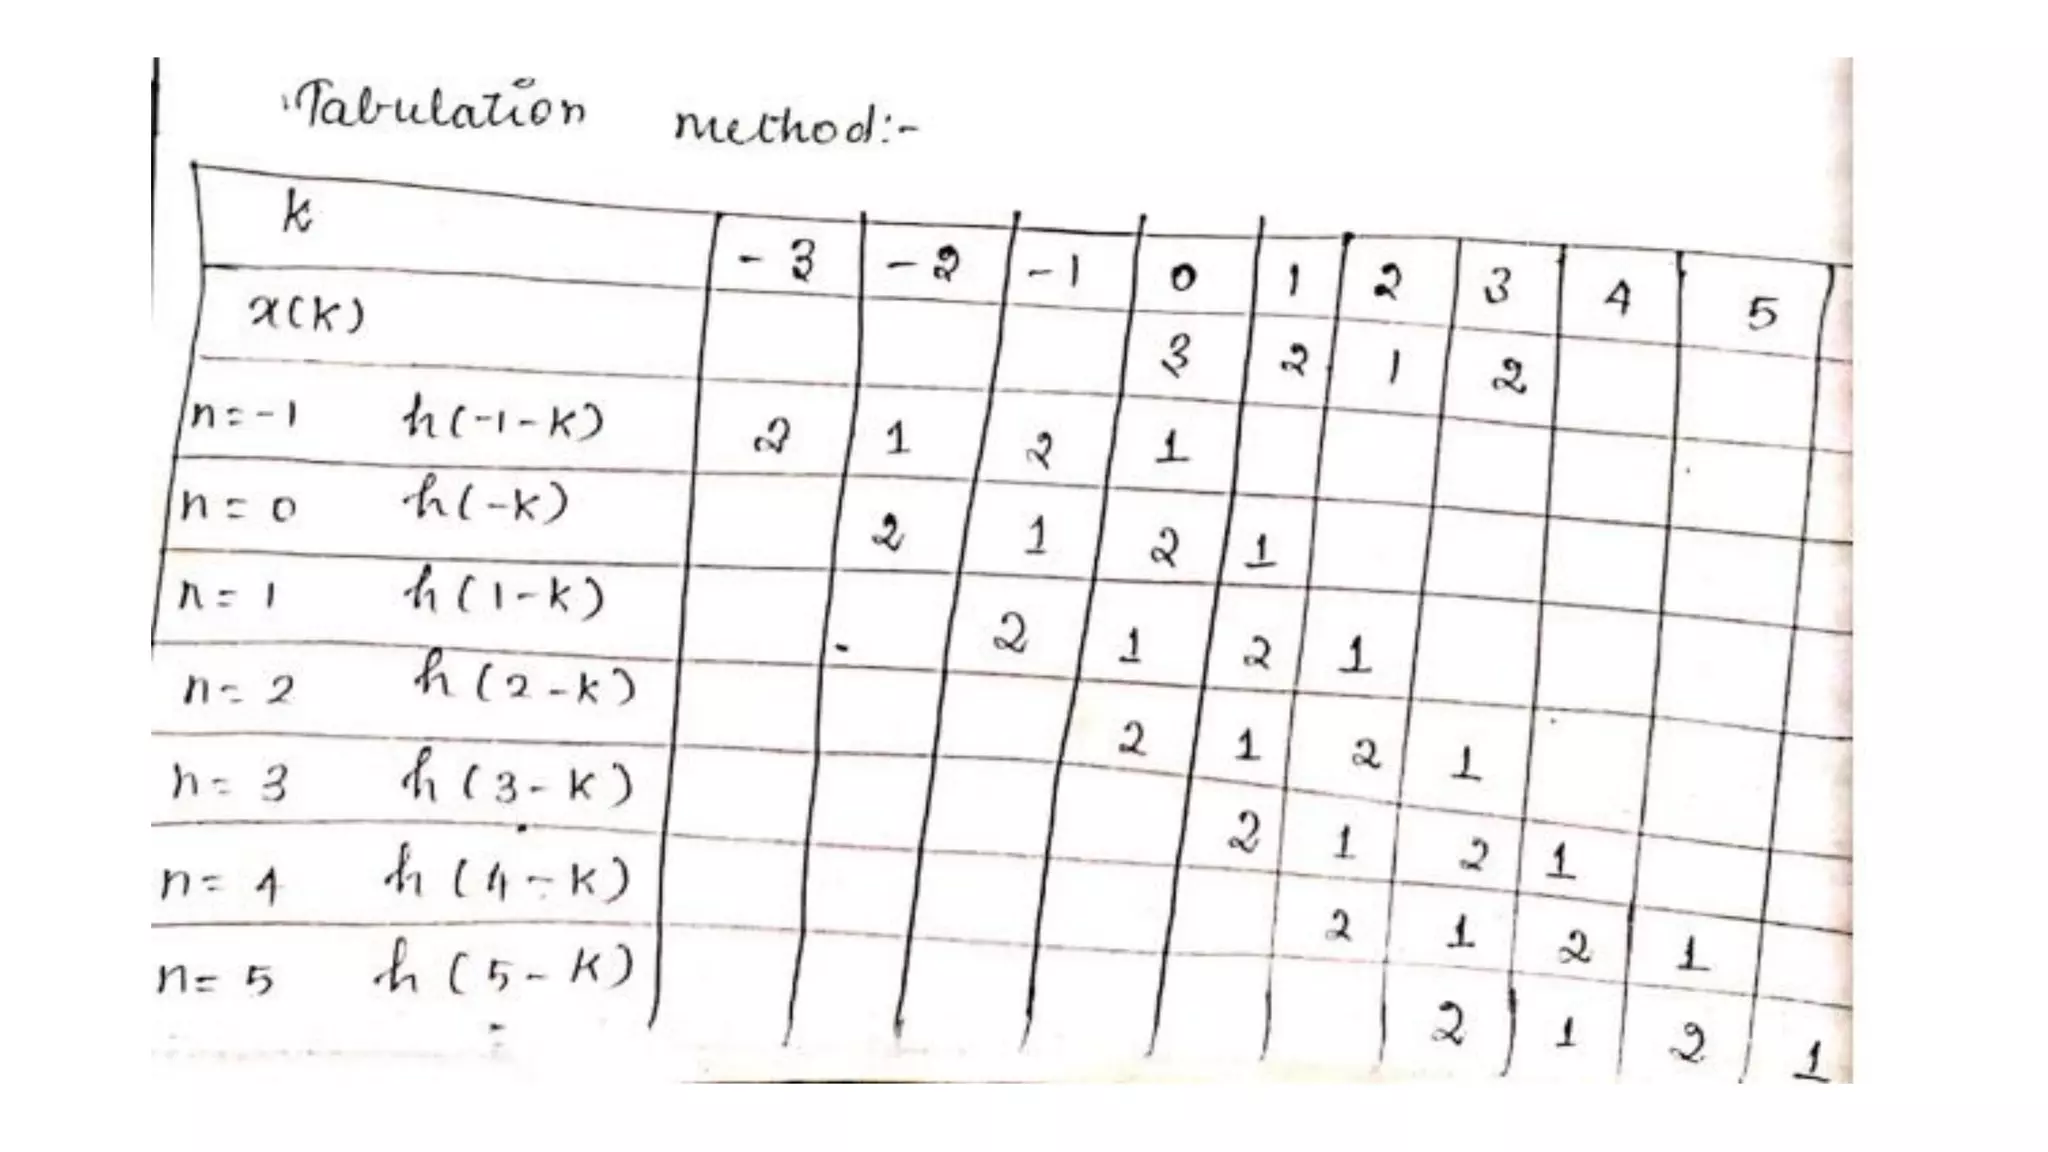 Tabulation method:-
k -3 -2 -1 0 1 2 3 4 5
x(k) 3 2 1 2
n=-1 h(-1-k) 2 1 2 1
n=0 h(-k) 2 1 2 1
n=1 h(1-k) 2 1 2 1
n=2 h(2-k) 2 1 2 1
n=3 h(3-k) 2 1 2 1
n=4 h(4-k) 2 1 2 1
n=5 h(5-k) 2 1 2 1